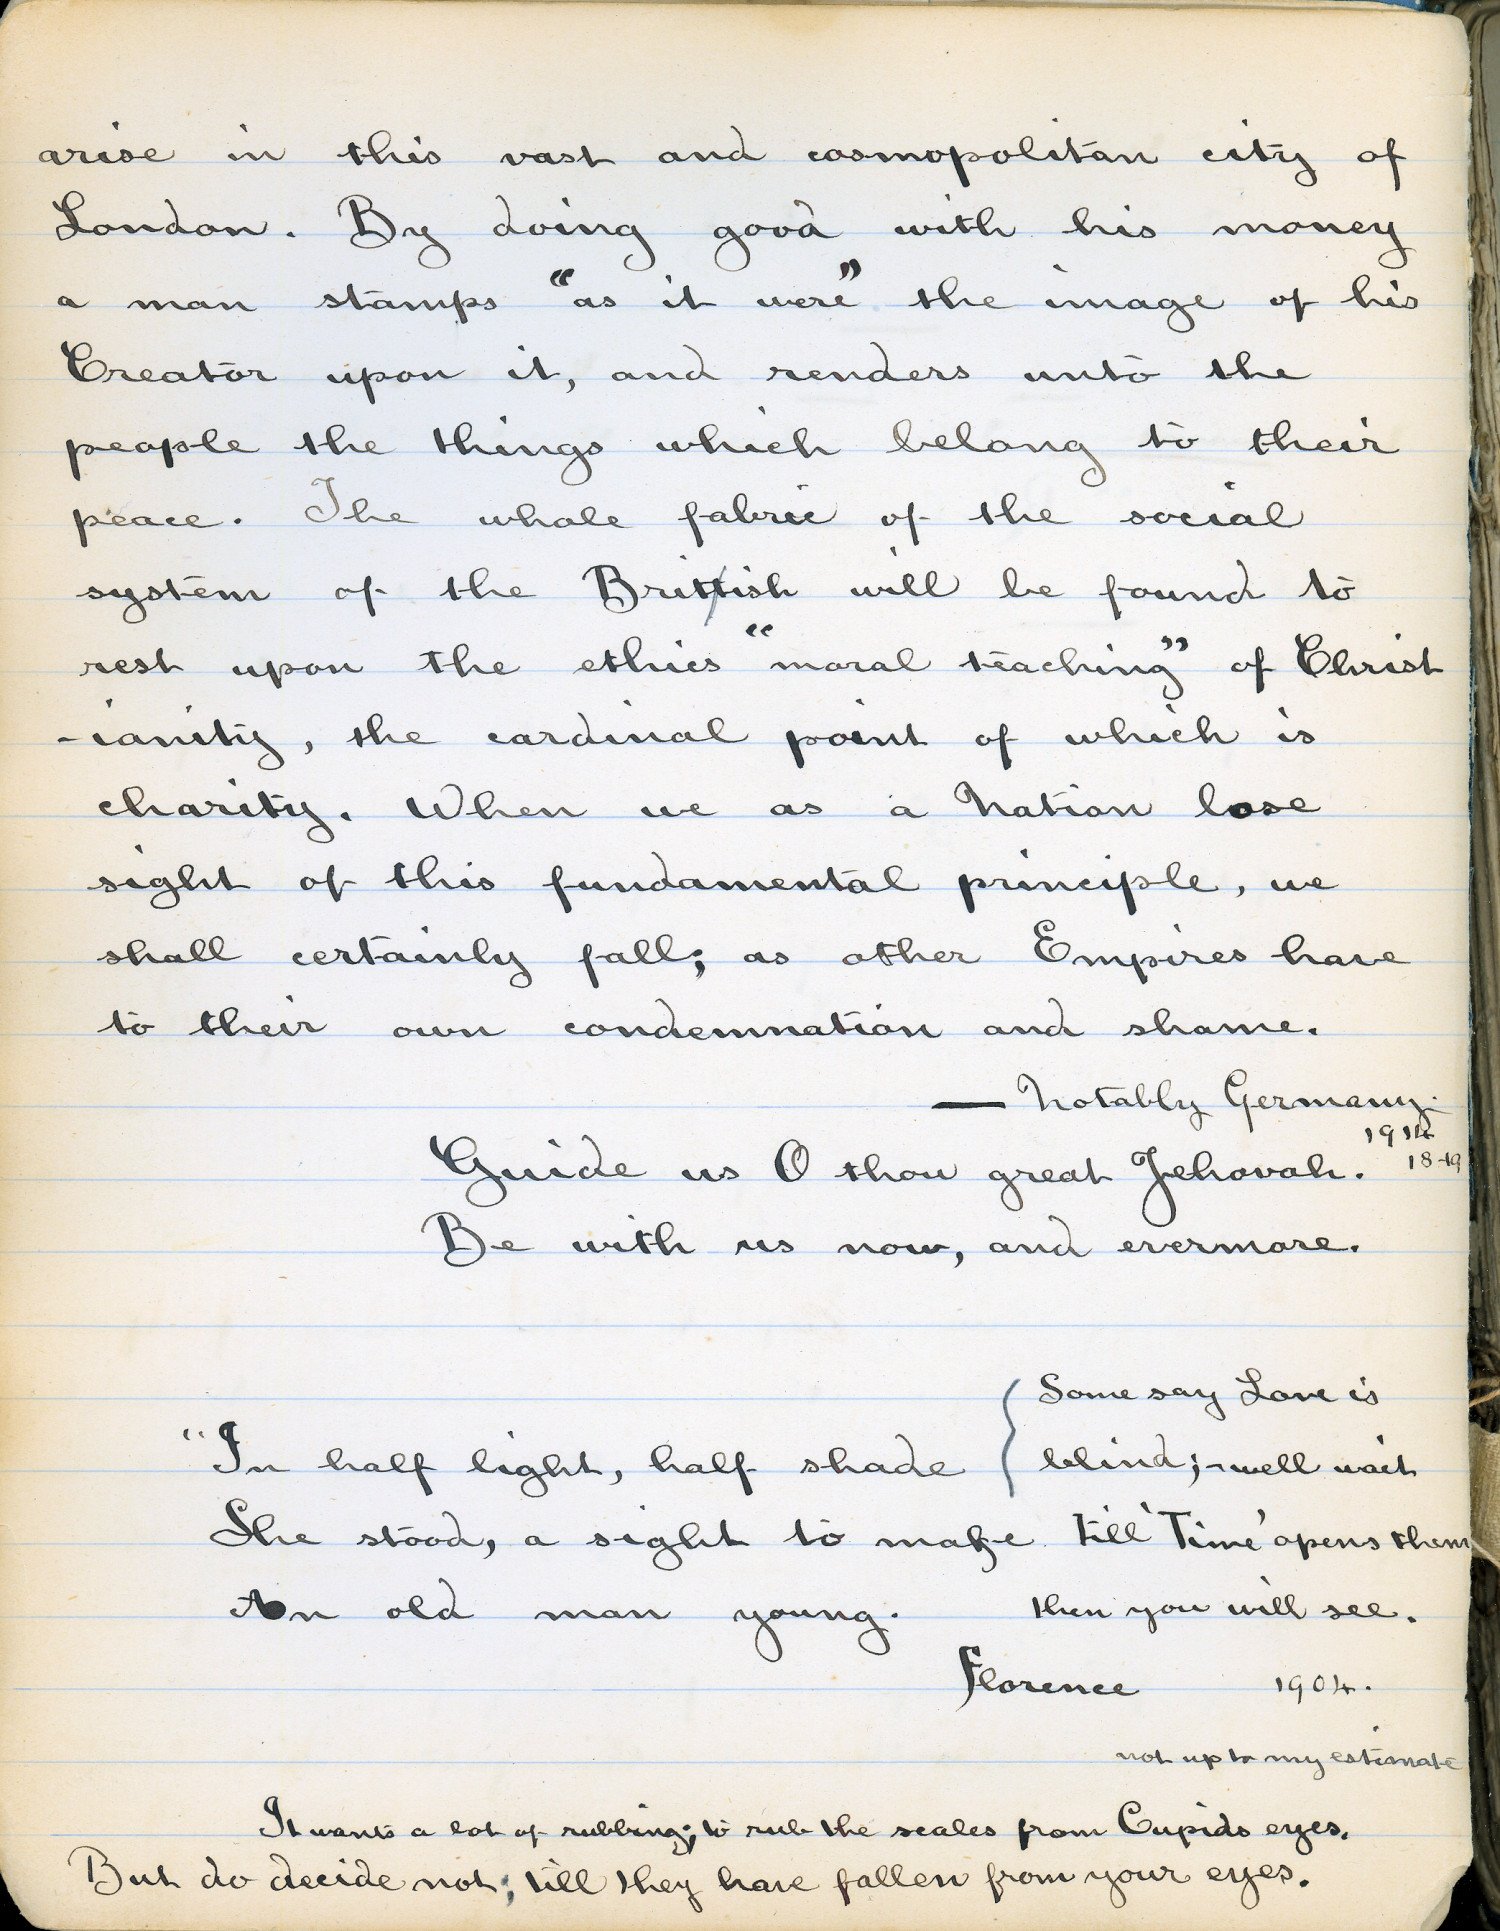 arise in this vast and cosmopolitan city of
London. By doing good with his money
a man stamps "as it were" the image of his
Creator upon it, and renders unto the
people the things which belong to their
peace. The whole fabric of the social
system of the Brittish will be found to
rest upon the ethics "moral teaching" of Christ
-ianity, the cardinal point of which is
charity. When we as a Nation lose
sight of this fundamental principle, we
shall certainly fall; as other Empires have
to their own condemnation and shame.
— Notably Germany.
1914
18-19
Guide us O thou great Jehovah.
Be with us now, and evermore.
"In half light, half shade
She stood, a sight to make
An old man young.
Some say Love is
blind; - well wait
till 'Time' opens them
then you will see.
Florence 1904.
not up to my estimate
It wants a lot of rubbing; to rub the scales from Cupids eyes.
But do decide not; till they have fallen from your eyes.